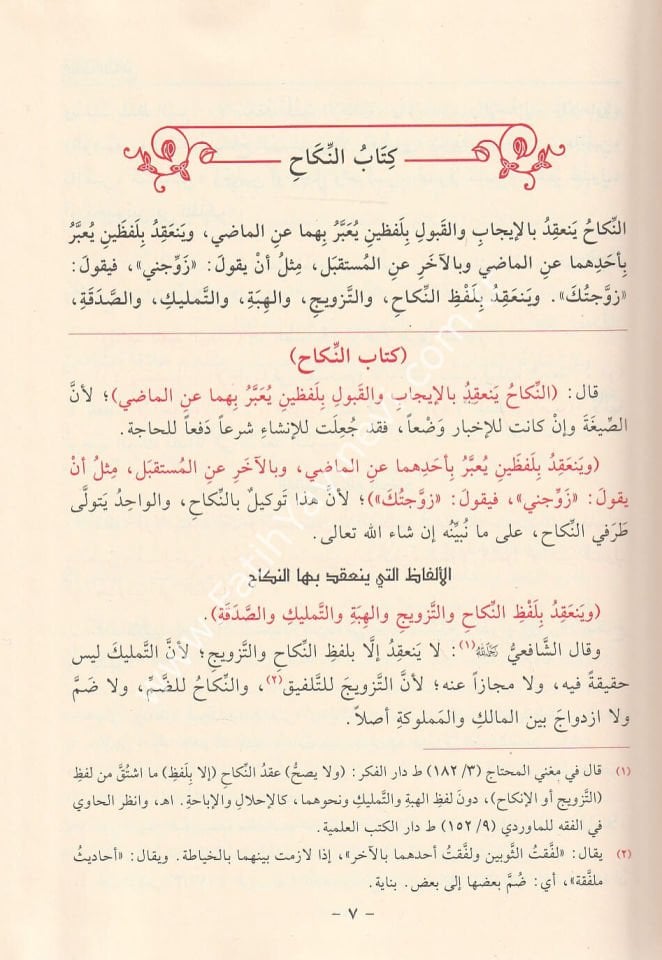 كِتَابُ النِّكَاحِ
النِّكَاحُ يَنعقِدُ بالإيجابِ والقَبولِ بِلَفظينِ يُعَبَّرُ بِهما عنِ الماضي، ويَنعَقِدُ بِلَفظَينِ يُعَبَّرُ
بِأحَدِهما عنِ الماضي وبالآخَرِ عنِ المُستقبَل، مِثلُ أنْ يقولَ: «زَوِّجني»، فيقولَ:
«زوَّجتُكَ». ويَنعَقِدُ بِلَفظِ النِّكاحِ، والتَّزويجِ، والهِبَةِ، والتَّمليكِ، والصَّدَقَةِ،
(كتاب النِّكاح)
قال: (النِّكاحُ يَنعقِدُ بالإيجابِ والقَبولِ بِلَفظينِ يُعَبَّرُ بِهما عنِ الماضي)؛ لأنَّ
الصِّيغَةَ وإنْ كانت للإخبارِ وَضْعاً، فقد جُعِلَت للإنشاءِ شرعاً دَفعاً للحاجة.
(ويَنعَقِدُ بِلَفظَينِ يُعبَّرُ بِأحَدِهما عنِ الماضي، وبالآخَرِ عنِ المُستقبَل، مِثلُ أنْ
يقولَ: «زَوِّجني»، فيقولَ: «زوَّجتُكَ»)؛ لأنَّ هذا تَوكيلٌ بالنِّكاح، والواحِدُ يَتولَّى
طَرَفي النِّكاح، على ما نُبيِّنُه إن شاء الله تعالى.
الألفاظ التي ينعقد بها النكاح
(ويَنعَقِدُ بِلَفظِ النِّكاحِ والتَّزويجِ والهِبَةِ والتَّمليكِ والصَّدَقَة).
وقال الشَّافعيُّ رحمه الله(١): لا يَنعقِدُ إلَّا بلفظِ النِّكاحِ والتَّزويج؛ لأنَّ التَّمليكَ ليس
حقيقةً فيه، ولا مجازاً عنه؛ لأنَّ التَّزويجَ للتَّلفيق(٢)، والنِّكاحُ للضَّمِّ، ولا ضَمَّ
ولا ازدواجَ بين المالكِ والمَملوكةِ أصلاً.
(١) قال في مغني المحتاج (٣/ ١٨٢) ط دار الفكر: (ولا يصحُّ) عقدُ النِّكاحِ (إلا بِلَفظِ) ما اشتُقَّ من لفظِ
(التَّزويج أو الإنكاح)، دونَ لفظِ الهبةِ والتَّمليكِ ونحوِهما، كالإحلالِ والإباحةِ. اهـ، وانظر الحاوي
في الفقه للماوردي (٩/ ١٥٢) ط دار الكتب العلمية.
(٢) يقال: «لفقتُ الثَّوبين ولفَّقتُ أحدهما بالآخر»، إذا لازمت بينهما بالخياطة. ويقال: «أحاديثُ
ملفَّقة»، أي: ضُمَّ بعضها إلى بعض. بناية.
- ٧ -